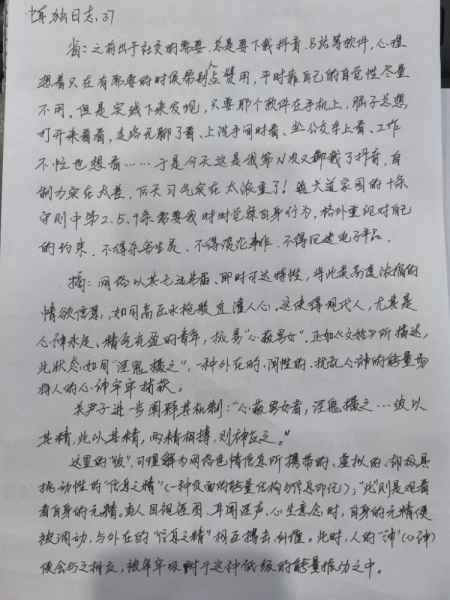 旅日志.37
省：之前出于社交的需要，总是要下载抖音、B站等软件，心理
想着只在有需要的时候带制点赞用，平时靠自己的自觉性尽量
不用。但是实践下来发现，只要那个软件在手机上，脑子总想
打开来看看，走路无聊了看、上洗手间时看、坐公交车上看、工作
不忙也想看……于是今天这是我第N次又卸载了抖音，自
制力实在太差，历天习气实在太浓重了！ 大道家园的十条
守则中第2.5.9条需要我时时觉察自身行为，格外重视对自己
的约束，不得杀害生灵、不得淫、不得沉迷电子产品。
摘：网络以其无远弗届、即时可达特性，将此类高度浓缩的
情欲信息，如同高压水枪般直灌人心。这使得现代人，尤其是
心神未定、精气充盈的青年，极易“心蔽男女”，正如《文始》所描述，
此状态如同“淫鬼摄之”，一种外在的、阴性的、扰乱心神的能量场
将人的心神牢牢捕获。
关尹子进一步阐释其机制：“心蔽男女者，淫鬼摄之…彼以
其精，此以其精，两精相搏，则神应之。”
这里的“彼”，可理解为网络色情信息所携带的、虚拟的、却极具
挑动性的“信息之精”（一种负面的能量结构与信息印记）；“此”则是观看
者自身的元精。当人目视淫图、耳闻淫声、心生意念时，自身的元精便
被调动，与外在的“信息之精”相互搏击、纠缠。此时，人的“神”（心神）
便会与之相应，被牢牢吸附于这种低级的能量振动之中。